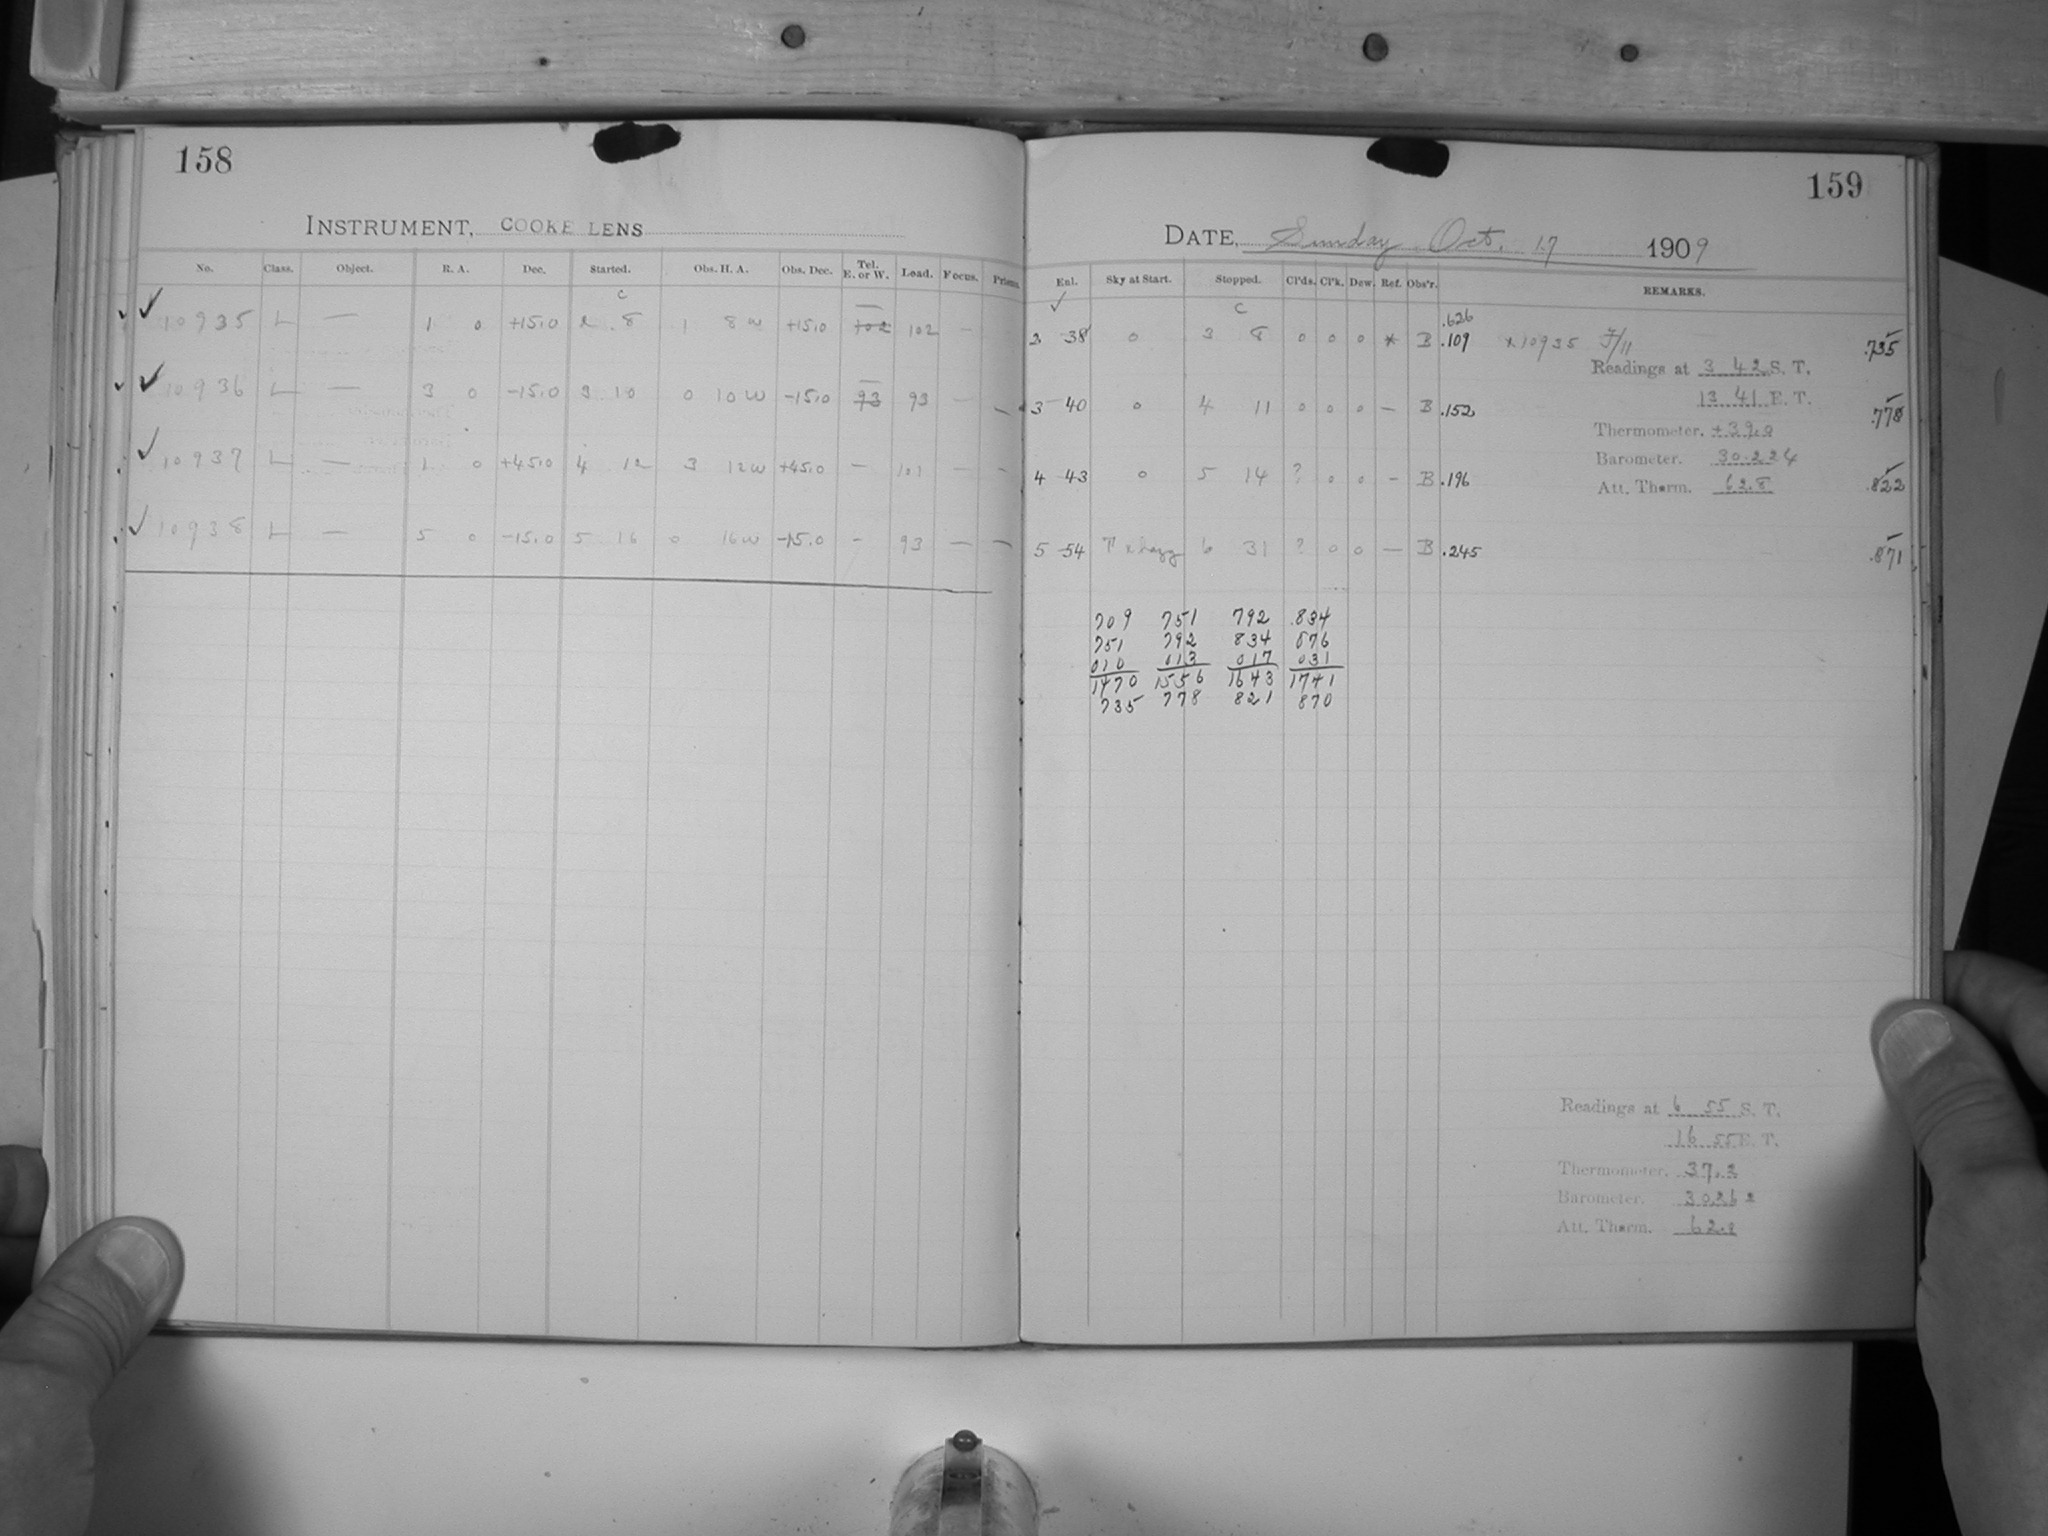 158
INSTRUMENT, COOKE LENS
No. Class. Object. R. A. Dec. Started. Obs. H. A. Obs. Dec. Tel. E. or W. Load. Focus. Prisms.
C
10935 L — 1 0 +15.0 2 8 1 8 W +15.0 102 102 —
10936 L — 3 0 -15.0 3 10 0 10 W -15.0 93 93 — —
10937 L — 1 0 +45.0 4 12 3 12 W +45.0 — 101 — —
10938 L — 5 0 -15.0 5 16 0 16 W -15.0 - 93 — —
159
DATE, Sunday Oct. 17 1909
Enl. Sky at Start. Stopped. Cl'ds. Cl'k. Dew. Ref. Obs'r. REMARKS.
C
.626
2 38 0 3 8 0 0 0 * B .109 x10935 F/11 .735
Readings at 3 42 S. T.
13 41 E. T.
3 40 0 4 11 0 0 0 — B .152 .778
Thermometer. +39.0
Barometer. 30.224
4 43 0 5 14 ? 0 0 - B .196 .822
Att. Therm. 62.8
5 54 hazy 6 31 ? 0 0 — B .245 .871
709 751 792 .834
751 792 834 876
010 013 017 031
1470 1556 1643 1741
735 778 821 870
Readings at 6 55 S. T.
16 55 E. T.
Thermometer. 37.2
Barometer.
Att. Therm. 62.2